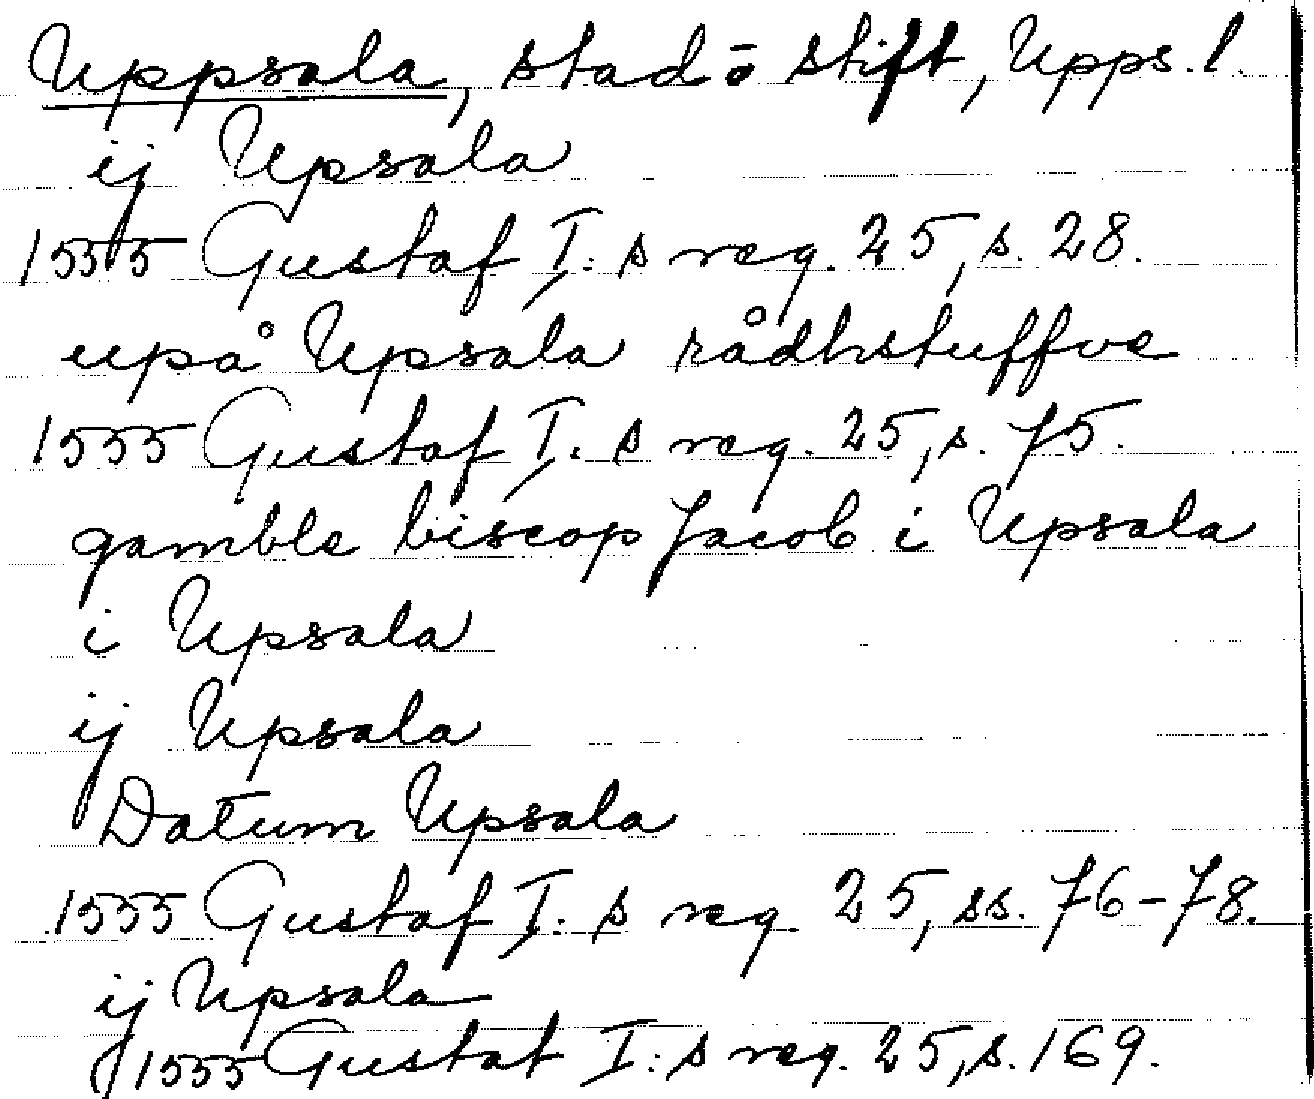 Uppsala, stad o stift, Upps. l.
ij Upsala
1555 Gustaf I:s reg. 25, s. 28.
upå Upsala rådhstuffve
1555 Gustaf I:s reg. 25, s. 75.
gamble biscop Jacob i Upsala
i Upsala
ij Upsala
Datum Upsala
1555 Gustaf I:s reg. 25, ss. 76-78.
ij Upsala
1555 Gustaf I:s reg. 25, s. 169.